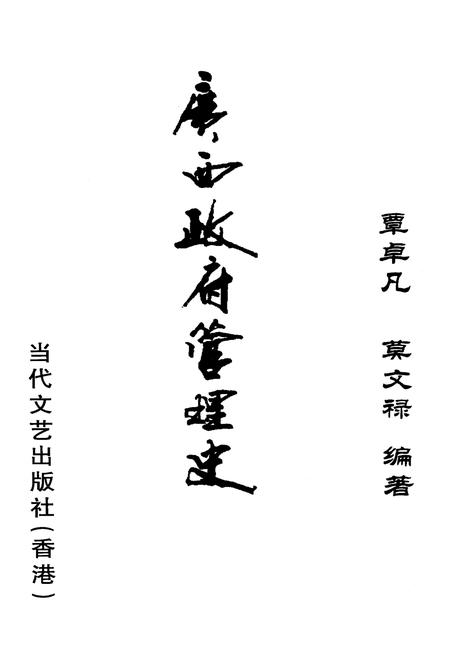 覃卓凡 莫文禄 编著
廣西政府管理史
当代文艺出版社(香港)